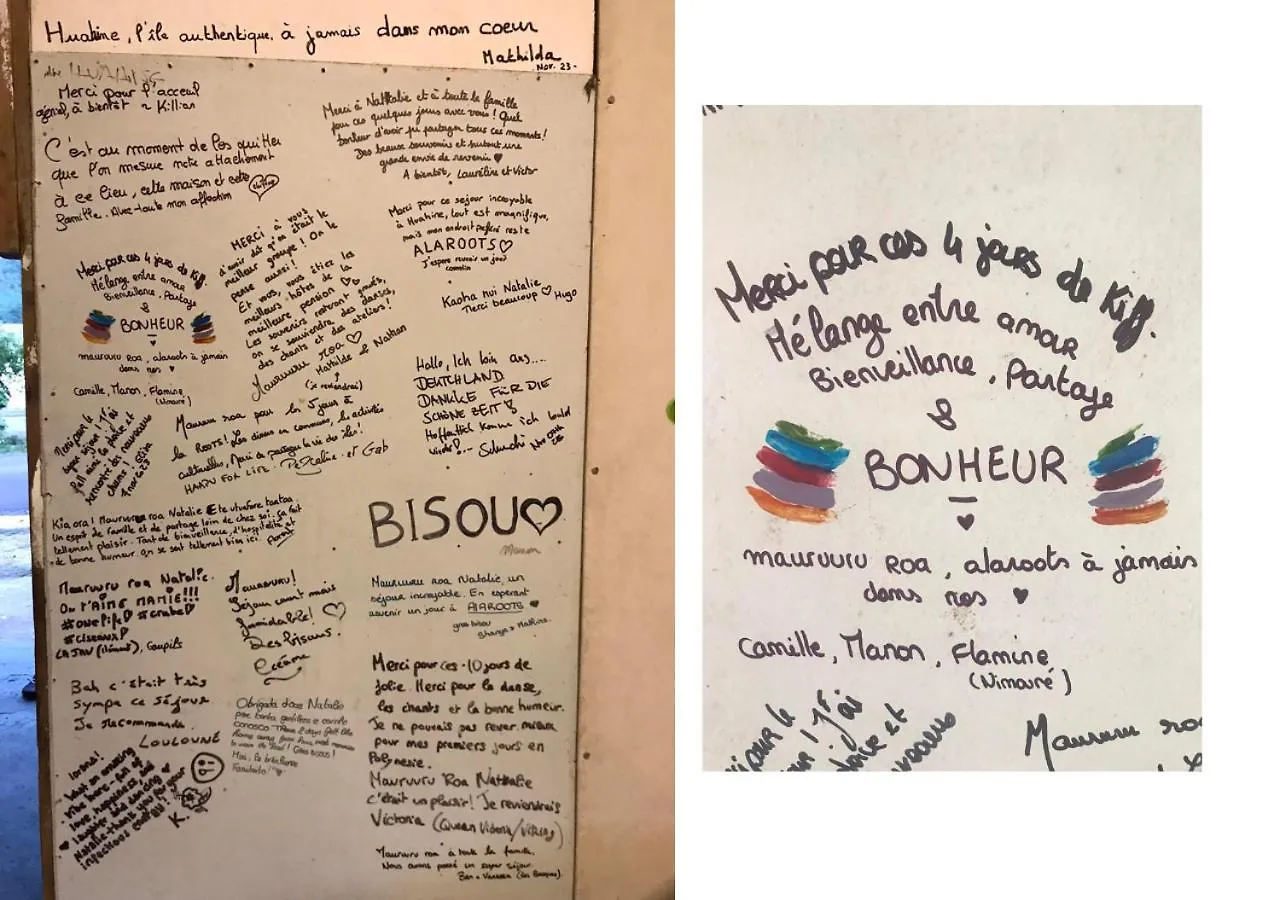 Huahine, l'île authentique, à jamais dans mon coeur
Mathilda
Nov. 23 -
Merci pour l'acceuil
génial, à bientôt ~ Killian
C'est au moment de les quitter
que l'on mesure notre attachement
à ce lieu, cette maison et cette
famille. Avec toute mon affection
Merci à Nathalie et à toute la famille
pour ces quelques jours avec vous ! Quel
bonheur d'avoir pu partager tous ces moments !
Des beaux souvenirs et surtout une
grande envie de revenir ♥
A bientôt, Laureline et Victor
Merci pour ce séjour incroyable
à Huahine, tout est magnifique,
mais mon endroit préféré reste
ALAROOTS ♡
J'espère revenir un jour
Kaoha nui Natalie
Merci beaucoup ♡ Hugo
MERCI à vous
d'avoir dit qu'on était le
meilleur groupe ! On le
pense aussi !
Et vous, vous étiez les
meilleurs hôtes de la
meilleure pension ♡♡
Les souvenirs resteront gravés,
on se souviendra des danses,
des chants et des ateliers !
Mauruuru roa ♡
Mathilde & Nathan
(je reviendrai)
Merci pour ces 4 jours de Kiff.
Mélange entre amour
Bienveillance, Partage
&
BONHEUR
♥
mauruuru Roa, alaroots à jamais
dans nos ♥
Camille, Manon, Flamine
(Nimauré)
Hallo, Ich bin aus....
DEUTCHLAND
DANKKE FÜR DIE
SCHÖNE ZEIT
Hoffentlich komme ich bald
Merci pour le
super séjour ! J'ai
Mauruuru roa pour les 5 jours à
la ROOTS! Les dîners en commun, les activités
culturelles, Merci de partager la vie des îles!
HAAPU FOR LIFE. Pascaline et Gab
Kia ora! Mauruuru roa Natalie
Un esprit de famille et de partage loin de chez soi. Ça fait
tellement plaisir. Tant de bienveillance, d'hospitalité et
de bonne humeur. On se sent tellement bien ici
BISOU♡
Manon
Mauruuru roa Natalie.
On t'AIME MAMIE!!!
#onelife♡ #crabe♡
#ciseaux♡
Mauruuru!
Séjour court mais
formidable! ♡
Des bisous.
Océane
Mauruuru roa Natalie, un
séjour incroyable. En espérant
revenir un jour à ALAROOTS ♥
gros bisou
Bah c'était très
sympa ce séjour
Je recommande.
LOULOUNE
Obrigada doce Natalie
Merci pour ces 10 jours de
folie. Merci pour la danse,
les chants et la bonne humeur.
Je ne pouvais pas rever mieux
pour mes premiers jours en
Polynesie.
Mauruuru Roa Nathalie
c'était un plaisir! Je reviendrais
Victoria (Queen Victoria/Viking)
Iorana!
What an amazing
vibe here - full of
love, happiness, and
laughter and dancing ♥
Natalie - thank you for your
infectious energy!
K.
Mauruuru roa à toute la famille.
Nous avons passé un super séjour.
Merci pour ces 4 jours de Kiff.
Mélange entre amour
Bienveillance, Partage
&
BONHEUR
♥
mauruuru Roa, alaroots à jamais
dans nos ♥
Camille, Manon, Flamine
(Nimauré)
Mauruuru roa